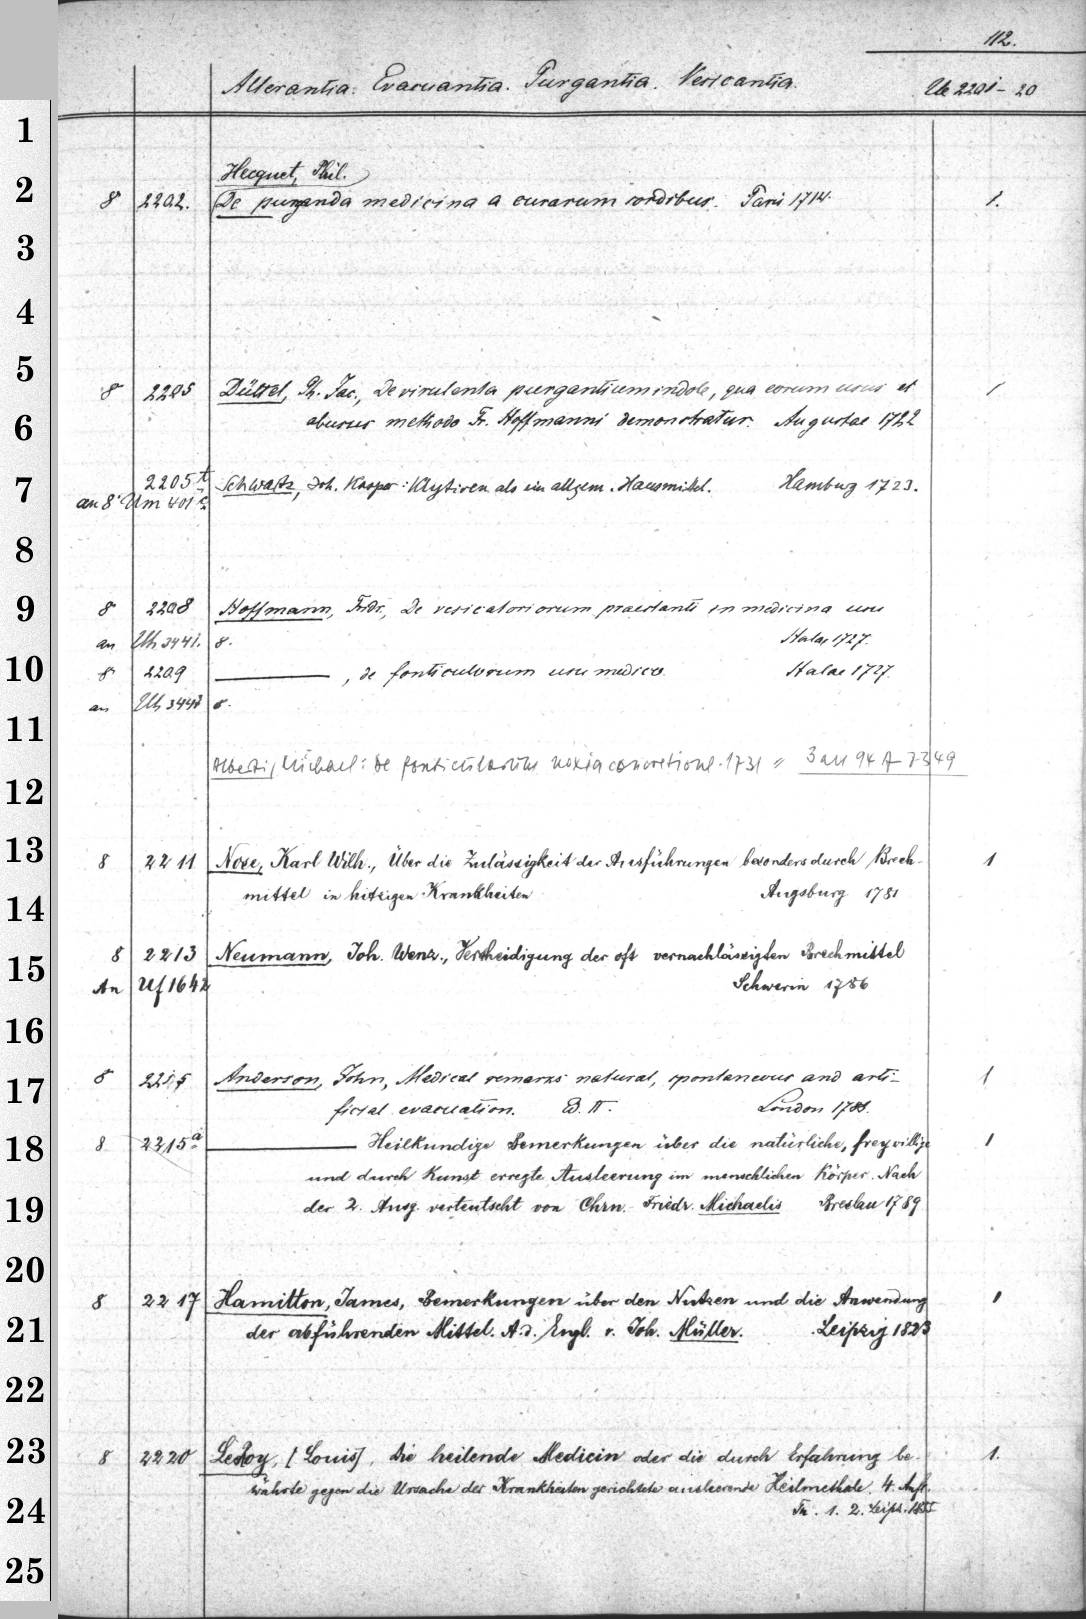 112.
Alterantia. Evacuantia. Purgantia. Vesicantia. Ue 2201-20
Hecquet, Phil.
8 2202. De purganda medicina a curarum sordibus. Paris 1714. 1.
8 2205 Düttel, Ph. Jac., De virulenta purgantium indole, qua eorum usus et 1
abusus methodo Fr. Hoffmanni demonstratur. Augustae 1722
2205 t Schwartz, Joh. Kaspar: Klystiren als ein allgem. Hausmittel. Hamburg 1723.
an 8° Um 401
8 2208 Hoffmann, Fridr., De vesicatoriorum praestanti in medicina usu
an 3441. 8. Halae 1727.
8 2209 ———, de fonticulorum usu medico Halae 1727.
an 8.
Alberti, Michael: de fonticulorum noxia concretione. 1731 = 3 an 94 A 7349
8 2211 Nose, Karl Wilh., Über die Zulässigkeit der Ausführungen besonders durch Brech- 1
mittel in hitzigen Krankheiten Augsburg 1781
8 2213 Neumann, Joh. Wenz., Vertheidigung der oft vernachlässigten Brechmittel
An Uf 1642 Schwerin 1786
8 2215 Anderson, John, Medical remarks natural, spontaneous and arti- 1
ficial evacuation. Ed. II. London 1788.
8 2215 a ——— Heilkundige Bemerkungen über die natürliche, freywillige 1
und durch Kunst erregte Ausleerung im menschlichen Körper. Nach
der 2. Ausg. verteutscht von Chrn. Friedr. Michaelis Breslau 1789
8 2217 Hamilton, James, Bemerkungen über den Nutzen und die Anwendung 1
der abführenden Mittel. A. d. Engl. v. Joh. Müller. Leipzig 1823
8 2220 LeRoy, [Louis], Die heilende Medicin oder die durch Erfahrung be- 1.
währte gegen die Ursache der Krankheiten gerichtete ausleerende Heilmethode. 4. Aufl.
Th. 1. 2. Leipz.
1
2
3
4
5
6
7
8
9
10
11
12
13
14
15
16
17
18
19
20
21
22
23
24
25